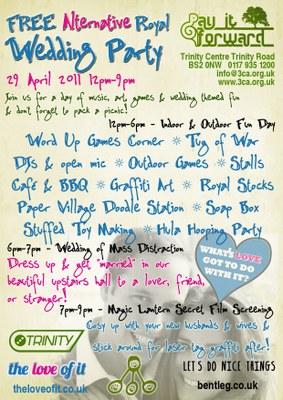 FREE Alternative Royal
Wedding Party
Pay it
forward
29 April 2011 12pm-9pm
Trinity Centre Trinity Road
BS2 0NW 0117 935 1200
info@3ca.org.uk
www.3ca.org.uk
Join us for a day of music, art, games & wedding themed fun
& don't forget to pack a picnic!
12pm-6pm - Indoor & Outdoor Fun Day
Word Up Games Corner * Tug of War
DJs & open mic * Outdoor Games * Stalls
Café & BBQ * Graffiti Art * Royal Stocks
Paper Village Doodle Station * Soap Box
Stuffed Toy Making * Hula Hooping Party
6pm-7pm - Wedding of Mass Distraction
Dress up & get "married" in our
beautiful upstairs hall to a lover, friend,
or stranger!
WHAT'S LOVE
GOT TO DO
WITH IT?
7pm-9pm - Magic Lantern Secret Film Screening
Cosy up with your new husbands & wives &
stick around for laser tag graffiti after!
TRINITY
the love of it
theloveofit.co.uk
LET'S DO NICE THINGS
bentleg.co.uk